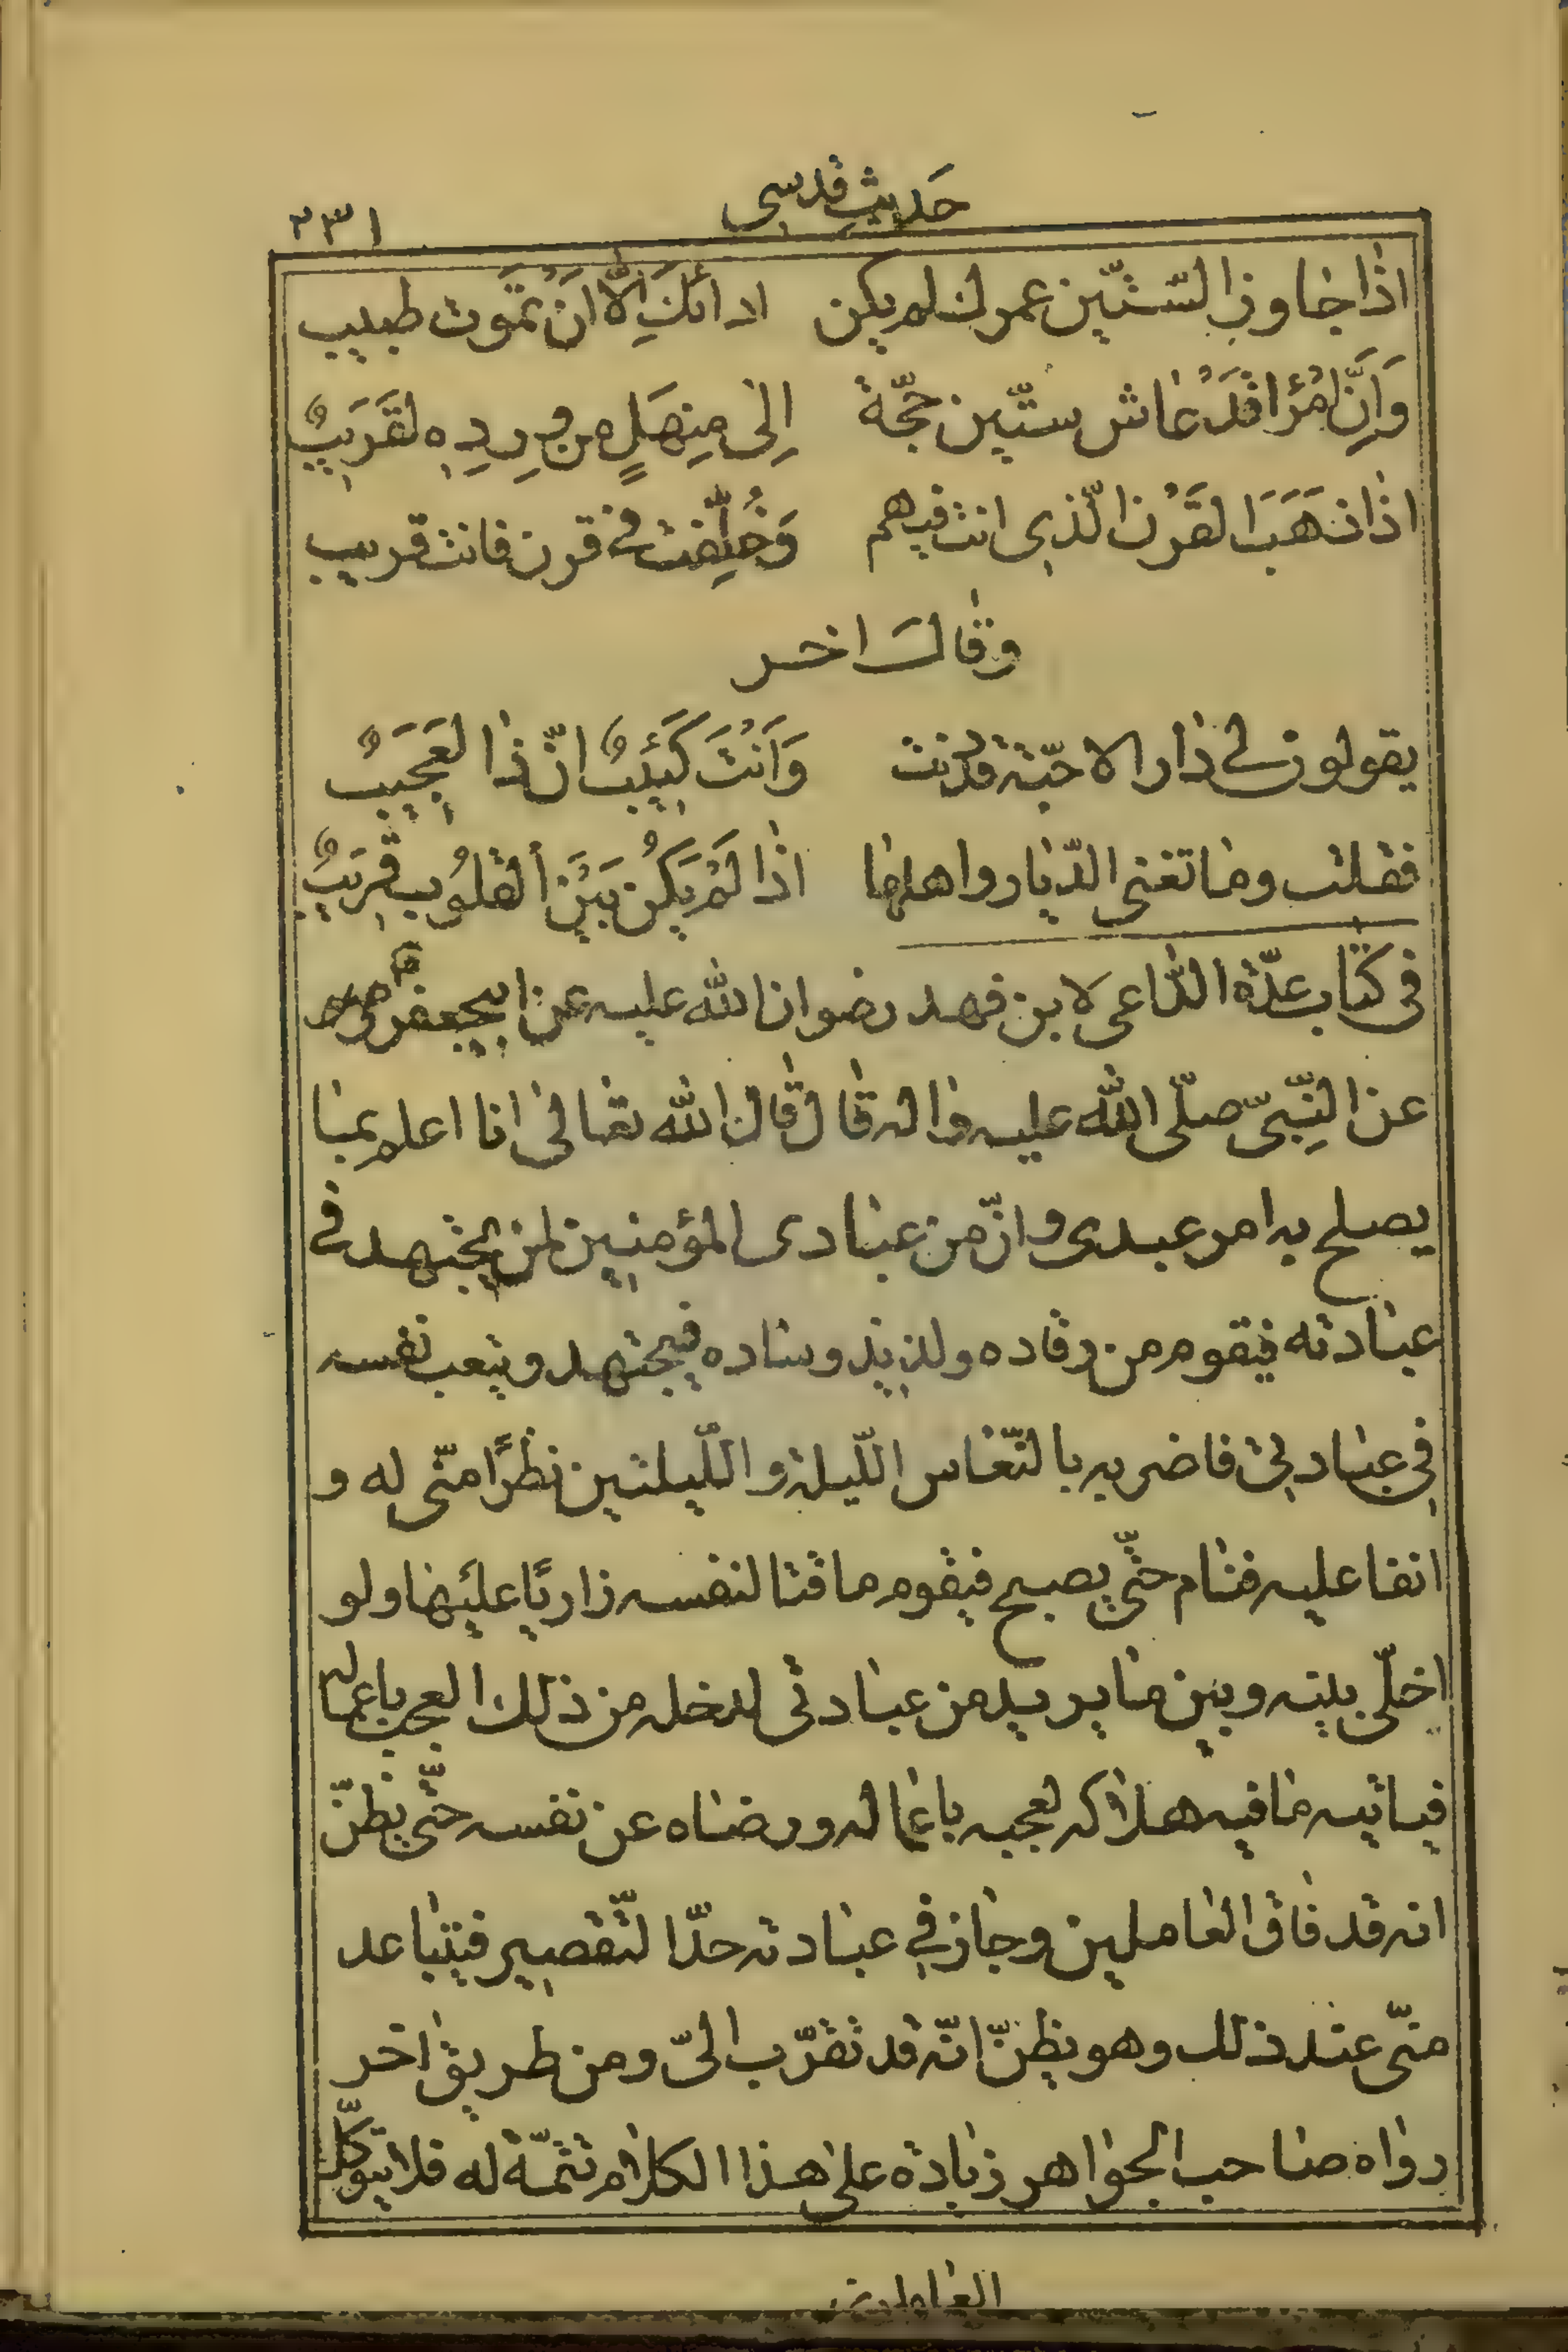 حَديثِ قدسى
٢٣١
اذا جاوز السّتّين عمرك لم يكن ادائكَ الّا انْ تَمُوت طبيب
وَاِنَّ امْرَا قَدْ عاش ستّين حجّة اِلى مِنهَلٍ من وِردِه لقَرَيبٌ
اذا ذهَبَ القَرْن الّذى انت فيهم وَخُلِّفت فى قرن فانت قريب
وقال اخر
يقولون لى دار الاحبّة قد دنت وَاَنْتَ كَئيبٌ انّ ذا لعَجَيبٌ
فقلت وما تغنى الدّيار واهلها اذا لَمْ يَكُن بَيْنَ القلُوب قريَبٌ
فى كتاب عدّة الدّاعى لابن فهد رضوان الله عليه عن ابيجعفر
عن النّبىّ صلّى الله عليه واله قال قال الله تعالى انا اعلم بما
يصلح به امر عبدى وانّ من عبادى المؤمنين لمن يجتهد فى
عبادته فيقوم من رقاده ولذيذ وساده فيجتهد ويتعب نفسه
فى عبادتى فاضربه بالنّعاس اللّيلة واللّيلتين نظرًا منّى له و
اتقا عليه فنام حتّى يصبح فيقوم ماقتا لنفسه زاريًا عليها ولو
اخلّى بينه وبين ما يريد من عبادتى لدخله من ذلك العجب باعماله
فياتيه مافيه هلاكه لعجبه باعماله ورضاه عن نفسه حتّى يظنّ
انه قد فاق العاملين وجاز فى عبادته حدّ التّقصير فيتباعد
منّى عند ذلك وهو يظنّ انّه قد تقرّب الىّ ومن طريق اخر
رواه صاحب الجواهر زيادة على هذا الكلام تتمّة له فلا يتوكّل
العاملون